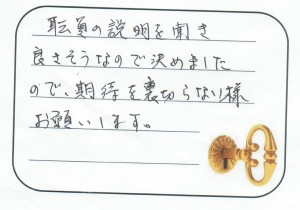 職員の説明を聞き
良さそうなので決めました
ので、期待を裏切らない様
お願いします。